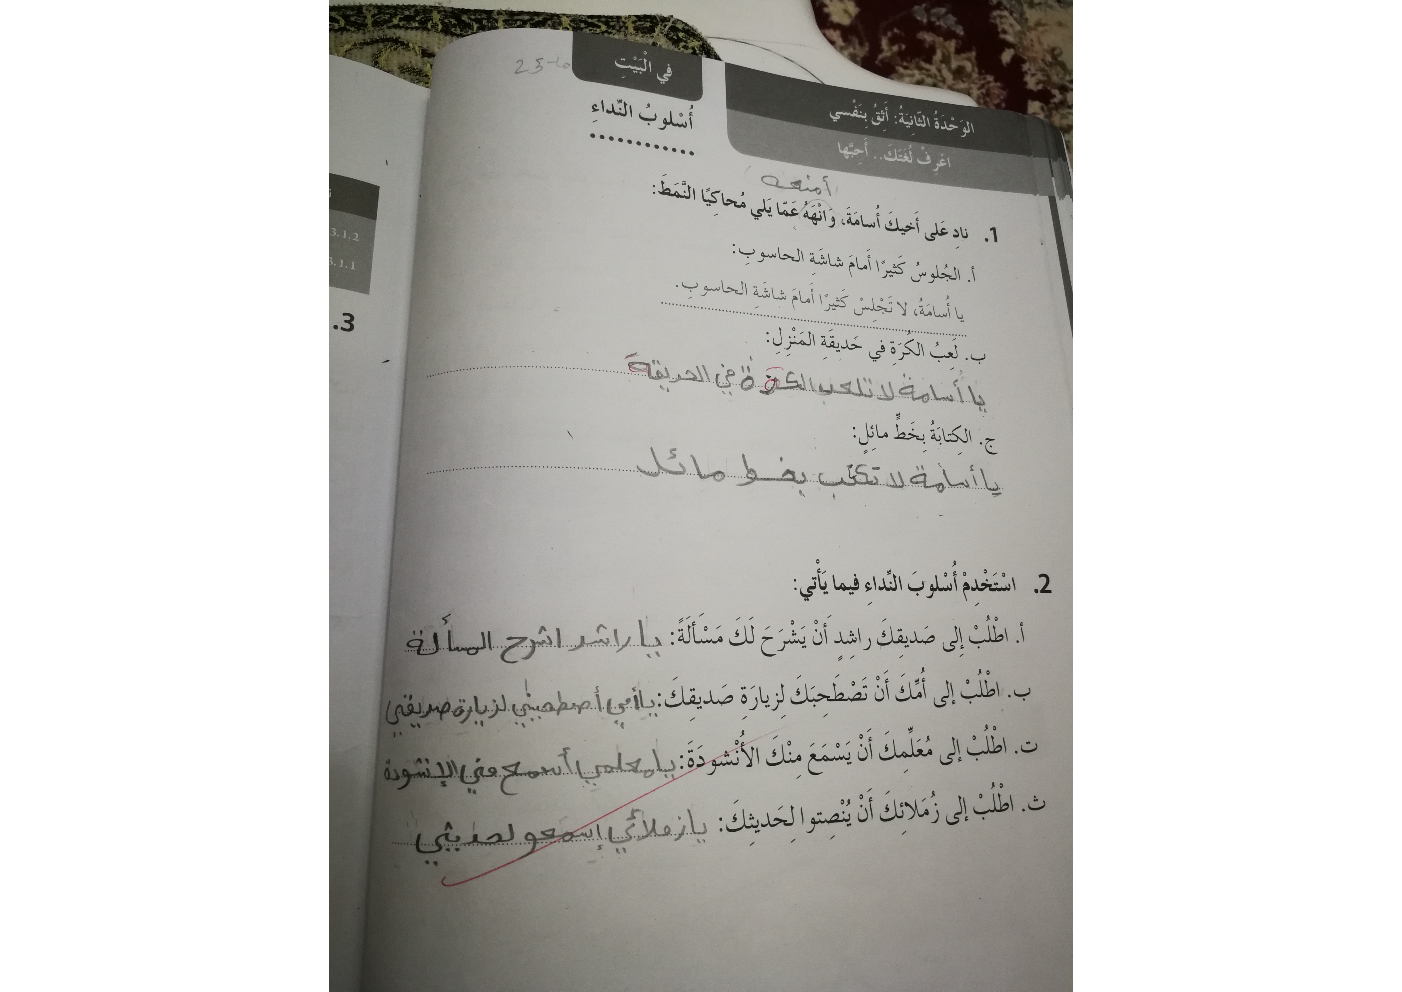 في الْبَيْتِ
الوَحْدَةُ الثّانِيَةُ: أَثِقُ بِنَفْسي
اعْرِفْ لُغَتَكَ.. أَحِبَّها
أُسْلوبُ النِّداءِ
أمنعه
1. نادِ عَلى أَخيكَ أُسامَةَ، وَانْهَهُ عَمّا يَلي مُحاكِيًا النَّمَطَ:
أ. الجُلوسُ كَثيرًا أَمامَ شاشَةِ الحاسوبِ:
يا أُسامَةُ، لا تَجْلِسْ كَثيرًا أَمامَ شاشَةِ الحاسوبِ.
ب. لَعِبُ الكُرَةِ في حَديقَةِ المَنْزِلِ:
يا أسامة لا تلعب الكرة في الحديقة
ج. الكِتابَةُ بِخَطٍّ مائِلٍ:
يا أسامة لا تكتب بخط مائل
2. اسْتَخْدِمْ أُسْلوبَ النِّداءِ فيما يَأْتي:
أ. اطْلُبْ إلى صَديقِكَ راشِدٍ أَنْ يَشْرَحَ لَكَ مَسْأَلَةً: يا راشد اشرح المسألة
ب. اطْلُبْ إلى أُمِّكَ أَنْ تَصْطَحِبَكَ لِزيارَةِ صَديقِكَ: يا أمي أصطحبني لزيارة صديقي
ت. اطْلُبْ إلى مُعَلِّمِكَ أَنْ يَسْمَعَ مِنْكَ الأُنْشودَةَ: يا معلمي أسمع مني الإنشودة
ث. اطْلُبْ إلى زُمَلائِكَ أَنْ يُنْصِتوا لِحَديثِكَ: يا زملائي إسمعو لحديثي
3.1.2
3.1.1
3.